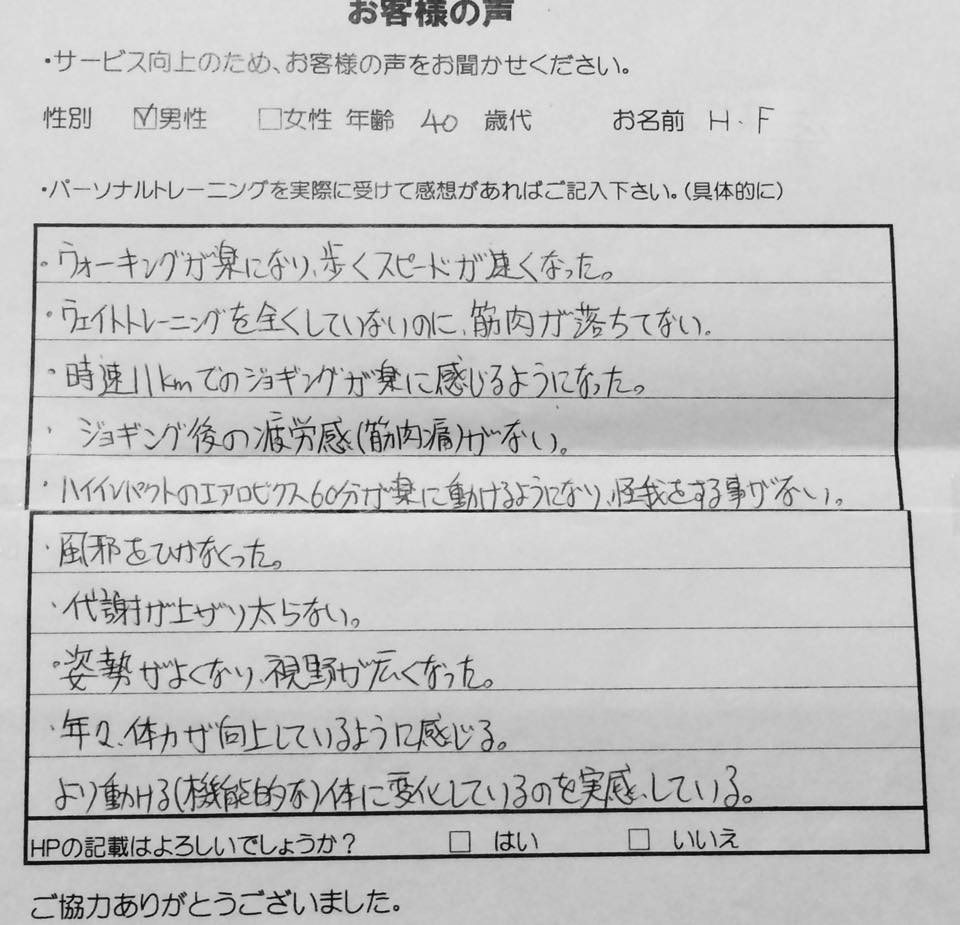 お客様の声
・サービス向上のため、お客様の声をお聞かせください。
性別 ☑男性 □女性 年齢 40 歳代 お名前 H.F
・パーソナルトレーニングを実際に受けて感想があればご記入下さい。(具体的に)
・ウォーキングが楽になり、歩くスピードが速くなった。
・ウェイトトレーニングを全くしていないのに、筋肉が落ちてない。
・時速11kmでのジョギングが楽に感じるようになった。
・ジョギング後の疲労感(筋肉痛)がない。
・ハイインパクトのエアロビクス60分が楽に動けるようになり、怪我をする事がない。
・風邪をひかなくった。
・代謝が上がり太らない。
・姿勢がよくなり、視野が広くなった。
・年々、体力が向上しているように感じる。
より動ける(機能的な)体に変化しているのを実感している。
HPの記載はよろしいでしょうか？ □ はい □ いいえ
ご協力ありがとうございました。